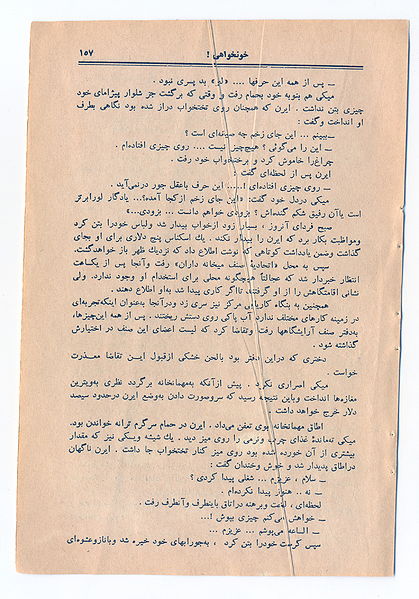 خونخواهی !
۱۵۷
ــ پس از همه این حرفها .... «لو» بد پسری نبود .
میکی هم بنوبه خود بحمام رفت و وقتی که برگشت جز شلوار پیژامای خود
چیزی بتن نداشت . ایرن که همچنان روی تختخواب دراز شده بود نگاهی بطرف
او انداخت وگفت :
ــ ببینم ... این جای زخم چه
است ؟
ــ این را می‌گوئی ؟ هیچ‌چیز نیست .... روی چیزی افتاده‌ام .
چراغ‌را خاموش کرد و برختخواب خود رفت .
ایرن پس از لحظه‌ای گفت :
ــ روی چیزی افتاده‌ای !..... این حرف باعقل جور درنمی‌آید .
میکی دردل خود گفت: «این جای زخم ازکجا آمده؟... یادگار لورابرتز
است یاآن رفیق شکم گنده‌اش ؟ بزودی خواهم دانست ... بزودی...»
صبح فردای آنروز ، بسیار زود ازخواب بیدار شد ولباس خودرا بتن کرد
ومواظبت بکار برد که ایرن را بیدار نکند . یك اسکناس پنج دلاری برای او بجای
گذاشت وضمن یادداشت کوتاهی که نوشت اطلاع داد که نزدیك ظهر باز خواهدگشت.
سپس به محل «اتحادیه صنف میخانه داران» رفت وآنجا پس از یکساعت
انتظار خبردار شد که عجالتا هیچگونه محلی برای استخدام او وجود ندارد. ولی
نشانی اقامتگاهش را از او گرفتند تااگر کاری پیدا شد به‌او اطلاع دهند .
همچنین به بنگاه کاریابی مرکز نیز سری زد ودرآنجا به‌عنوان اینکه‌تجربه‌ای
در زمینه کارهای مختلف ندارد آب پاکی روی دستش ریختند . پس از همه این‌چیزها،
به‌دفتر صنف آرایشگاهها رفت وتقاضا کرد که لیست اعضای این صنف در اختیارش
گذاشته شود .
دختری که دراین دفتر بود بالحن خشکی ازقبول ایـن تقاضا معـذرت
خواست .
میکی اصراری نکرد . پیش ازآنکه به‌مهمانخانه برگردد نظری به‌ویترین
مغازه‌ها انداخت وباین نتیجه رسید که سروصورت دادن به‌وضع ایرن درحدود سیصد
دلار خرج خواهد داشت .
اطاق مهمانخانه بوی تعفن می‌داد . ایرن در حمام سرگرم ترانه خواندن بود.
میکی ته‌مانده غذای چرب ونرمی را روی میز دید . یك شیشه ویسکی نیز که مقدار
بیشتری از آن خورده شده بود روی میز کنار تختخواب جا داشت . ایرن ناگهان
دراطاق پدیدار شد و خوش وخندان گفت :
ــ سلام ، عزیزم ... شغلی پیدا کردی ؟
ــ نه .. هنوز پیدا نکرده‌ام .
لحظه‌ای ، لخت وبرهنه دراتاق باینطرف وآنطرف رفت .
ــ خواهش می‌کنم چیزی بپوش !...
ــ الساعه می‌پوشم ... عزیزم ...
سپس کرست خودرا بتن کرد ، به‌جورابهای خود خیره شد وبانازوعشوه‌ای